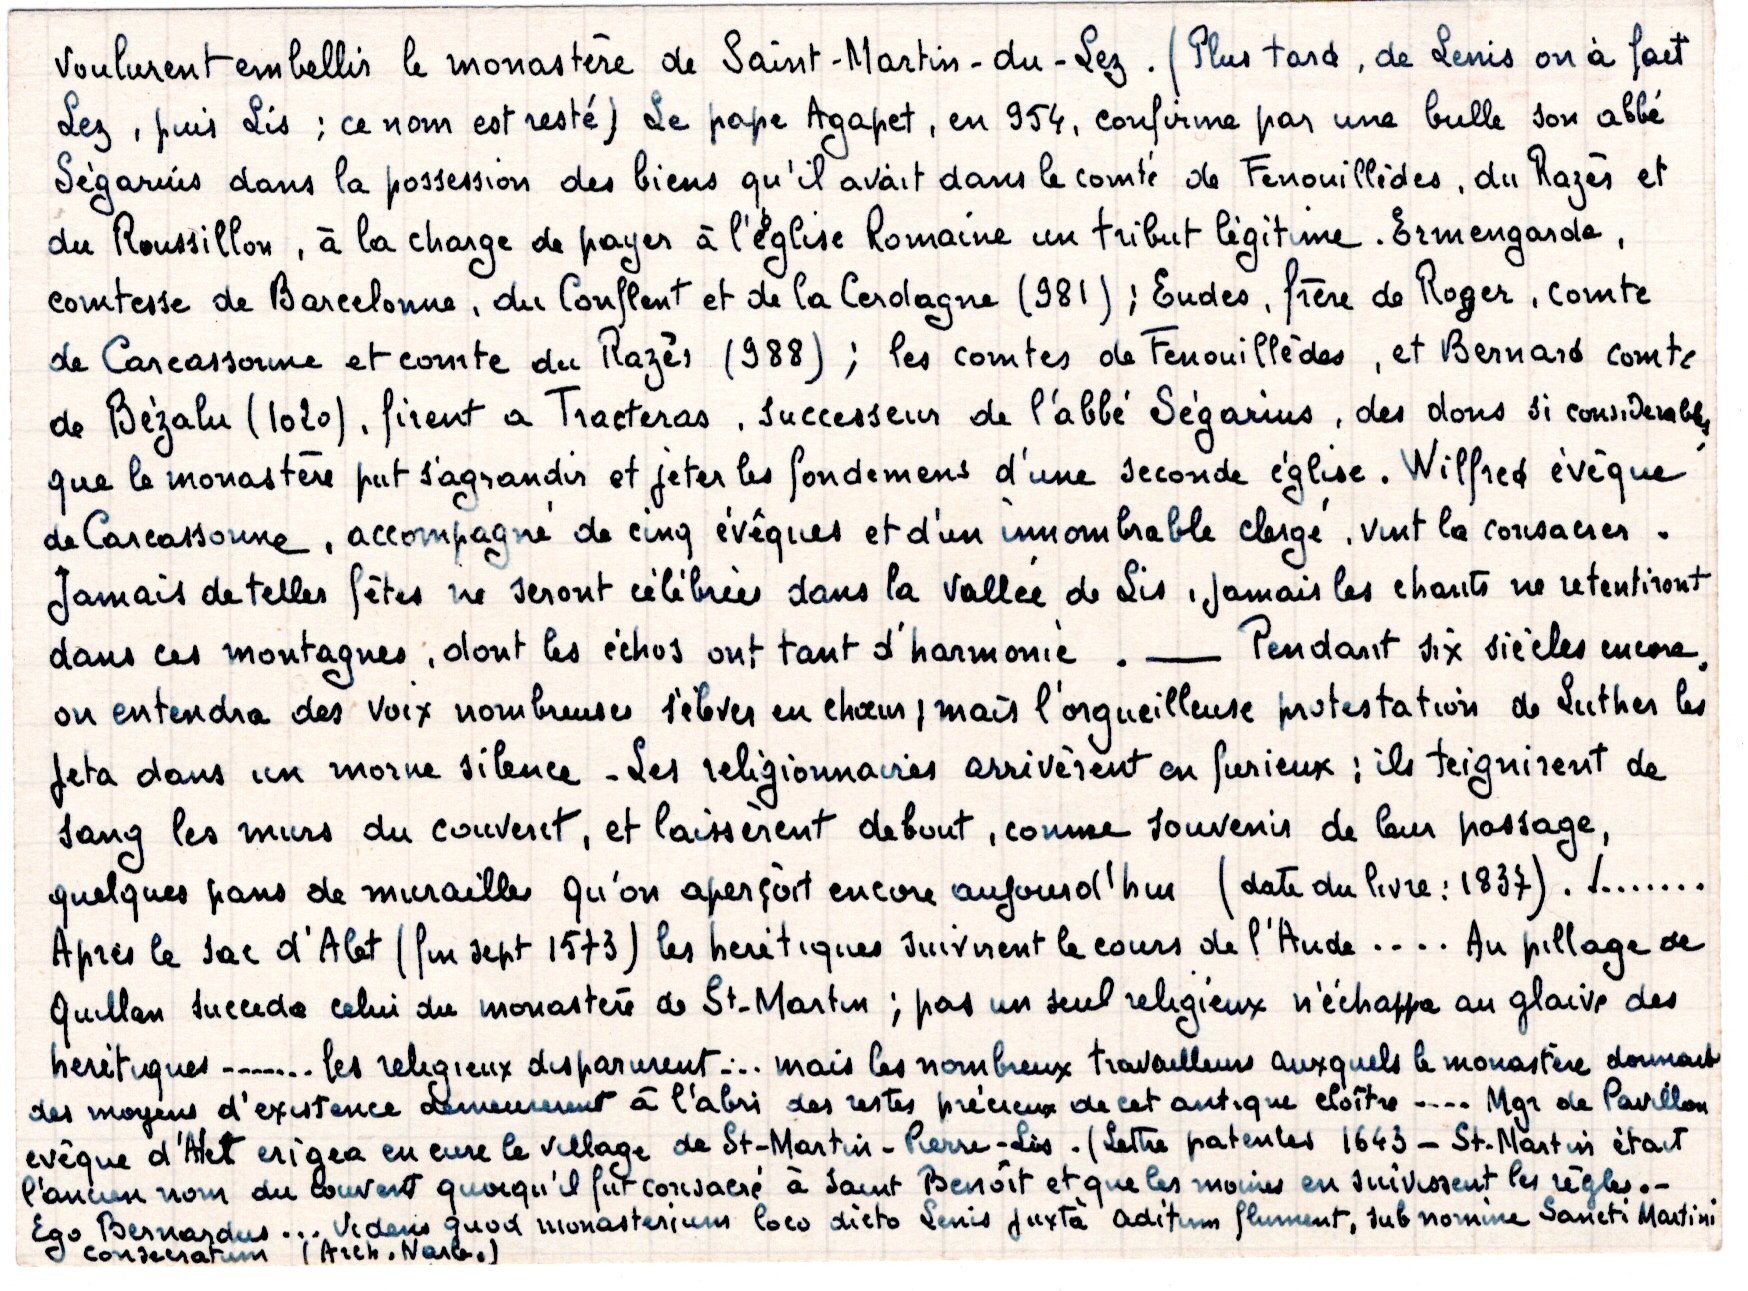 voulurent embellir le monastère de Saint-Martin-du-Lez. (Plus tard, de Lenis on à fait
Lez, puis Lis ; ce nom est resté) Le pape Agapet, en 954, confirma par une bulle son abbé
Ségarius dans la possession des biens qu'il avait dans le comté de Fenouillèdes, du Razès et
du Roussillon, à la charge de payer à l'église Romaine un tribut légitime. Ermengarde,
comtesse de Barcelonne, du Conflent et de la Cerdagne (981) ; Eudes, frère de Roger, comte
de Carcassonne et comte du Razès (988) ; les comtes de Fenouillèdes, et Bernard comte
de Bézalu (1020), firent a Tracteras, successeur de l'abbé Ségarius, des dons si considerables,
que le monastère put s'agrandir et jeter les fondemens d'une seconde église. Wilfred évêque
de Carcassonne, accompagné de cinq évêques et d'un innombrable clergé, vint la consacrer.
Jamais de telles fêtes ne seront célébrées dans la vallée de Lis, jamais les chants ne retentiront
dans ces montagnes, dont les échos ont tant d'harmonie. — Pendant six siècles encore,
on entendra des voix nombreuses s'élever en chœur ; mais l'orgueilleuse protestation de Luther les
jeta dans un morne silence - Les religionnaires arrivèrent en furieux ; ils teignirent de
sang les murs du couvent, et laissèrent debout, comme souvenir de leur passage,
quelques pans de murailles qu'on aperçoit encore aujourd'hui (date du livre : 1837). /.......
Après le sac d'Alet (fin sept 1573) les herétiques suivirent le cours de l'Aude .... Au pillage de
Quillan succeda celui du monastère de St-Martin ; pas un seul religieux n'échappa au glaive des
herétiques ------... les religieux disparurent ... mais les nombreux travailleurs auxquels le monastère donnait
des moyens d'existence demeurerent à l'abri des restes précieux de cet antique cloître ---- Mgr de Pavillon
evêque d'Alet erigea en cure le village de St-Martin-Pierre-Lis. (Lettre patentes 1643 - St-Martin était
l'ancien nom du couvent quoiqu'il fut consacré à Saint Benoît et que les moines en suivissent les règles.-
Ego Bernardus ... Videns quod monasterium loco dicto Lenis juxtà aditum flument, sub nomine Sancti Martini
consecratum (Arch. Narb.)